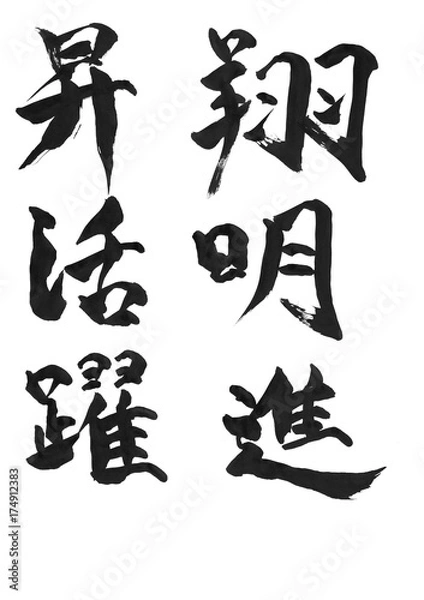 翔明進
昇活躍
Adobe Stock | #174912383